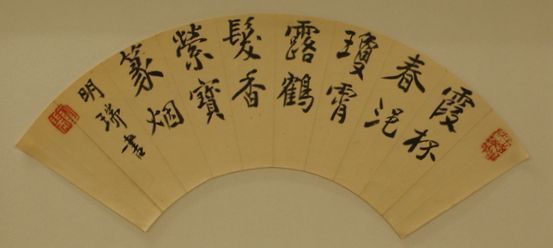 霞杯
春浥
瓊霄
露鶴
髮香
縈寶
篆烟
明瑞書